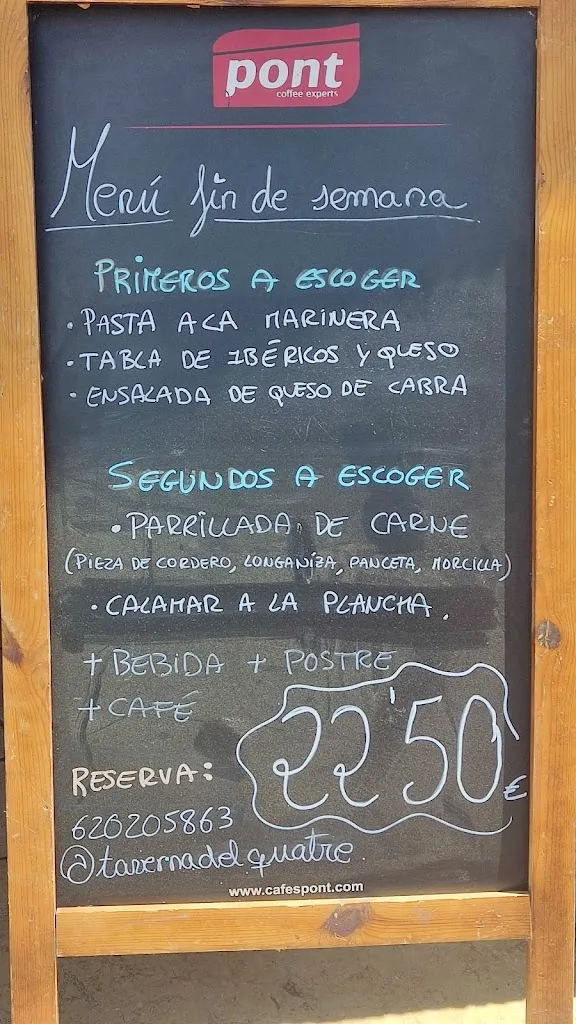 pont
coffee experts
Menú fin de semana
PRIMEROS A ESCOGER
· PASTA A LA MARINERA
· TABLA DE IBÉRICOS Y QUESO
· ENSALADA DE QUESO DE CABRA
SEGUNDOS A ESCOGER
· PARRILLADA DE CARNE
(PIEZA DE CORDERO, LONGANÍZA, PANCETA, MORCILLA)
· CALAMAR A LA PLANCHA.
+ BEBIDA + POSTRE
+ CAFÉ
22'50€
RESERVA:
620205863
@tavernadelquatre
www.cafespont.com